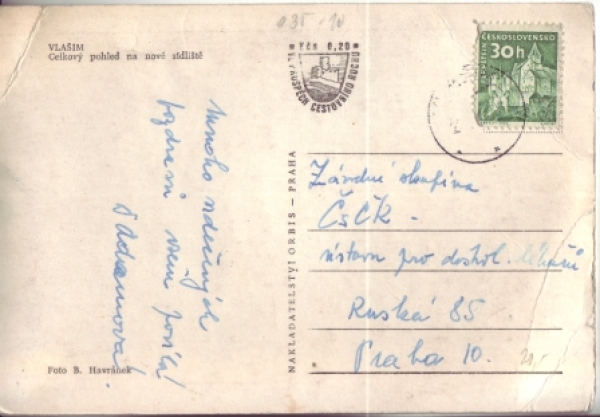 035-10
VLAŠIM
Celkový pohled na nové sídliště
Kčs 0,20
VE PROSPĚCH CESTOVNÍHO RUCHU
ČESKOSLOVENSKO
30h
KAŠPERK
Mnoho srdečných
pozdravů všem posílá
Adamová!
NAKLADATELSTVÍ ORBIS — PRAHA
Závodní skupina
ČsČK -
ústavu pro doškol. lékařů
Ruská 85
Praha 10.
Foto B. Havránek